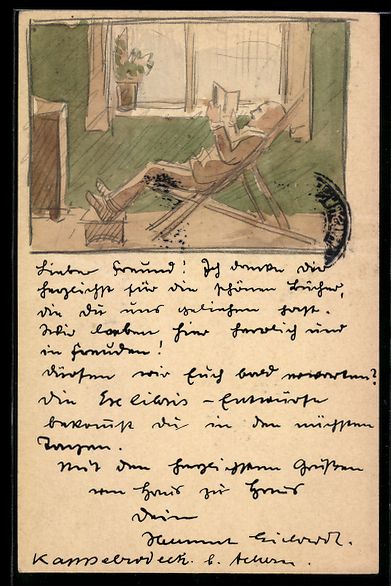 Lieber Freund! Ich danke Dir
herzlichst für die schönen Bücher,
die Du uns geliehen hast.
Wir leben hier herrlich und
in Freuden!
Dürfen wir Euch bald erwarten?
Die Exlibris-Entwürfe
bekommst Du in den nächsten
Tagen.
Mit den herzlichsten Grüßen
von Haus zu Haus
Dein
Kappelrodeck b. Achern.